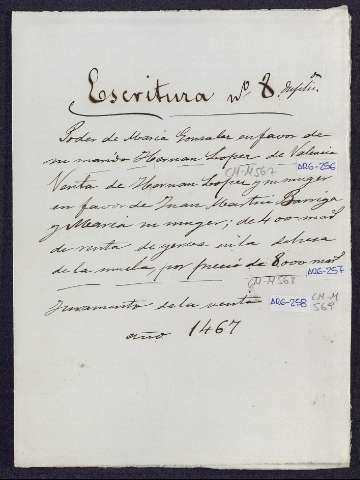 Escritura nº 8
Poder de Maria Gonzalez en favor de
su marido Hernan Lopez de Valencia
CM-M 567 ARG-256
Venta de Hernan Lopez y su muger
en favor de Juan Martin Barriga
y Maria su muger; de 400 mrs
de renta de yervas en la dehesa
de la mula, por precio de 8000 mrs
CM-M 568 ARG-257
Juramento de la venta ARG-258 CM-M 569
año 1467